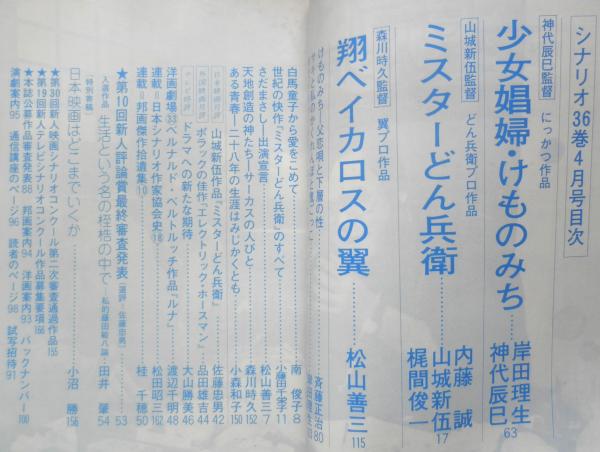 シナリオ36巻4月号目次
神代辰巳監督 にっかつ作品
少女娼婦・けものみち……岸田理生 神代辰巳 63
山城新伍監督 どん兵衛プロ作品
ミスターどん兵衛……内藤誠 山城新伍 梶間俊一 17
森川時久監督 翼プロ作品
翔べイカロスの翼……松山善三 115
けものみち 父恋唄と下層の性……斉藤正治 80
白馬童子から愛をこめて……南俊子 8
世紀の快作『ミスターどん兵衛』のすべて……小藤田千栄子 11
さだまさし―出演宣言……松山善三 7
天地創造の神たち―サーカスの人びと……森川時久 152
ある青春―二十八年の生涯はみじかくとも……小森和子 150
日本映画批評 山城新伍作品『ミスターどん兵衛』……佐藤忠男 42
外国映画批評 ポラックの佳作『エレクトリック・ホースマン』……品田雄吉 44
テレビ時評 ドラマへの新たな期待……大山勝美 46
洋画劇場33 ベルナルド・ベルトルッチ作品『ルナ』……渡辺千明 48
連載・8 日本シナリオ作家協会史 16……松田昭三 162
連載・邦画傑作拾遺集 10……桂千穂 50
★第10回新人評論賞最終審査発表〔選評・佐藤忠男〕……53
入選作品 生活という名の桎梏の中で―私的藤田敏八論―田井肇 54
〔特別寄稿〕
日本映画はどこまでいくか……小沼勝 156
★第30回新人映画シナリオコンクール第二次審査通過作品 155
★第19回新人テレビシナリオコンクール作品募集要項 166
★本誌公募作品審査発表 88 邦画案内 94 洋画案内 93 バックナンバー 100
演劇案内 95 通信講座のページ 96 読者のページ 98 試写招待 91